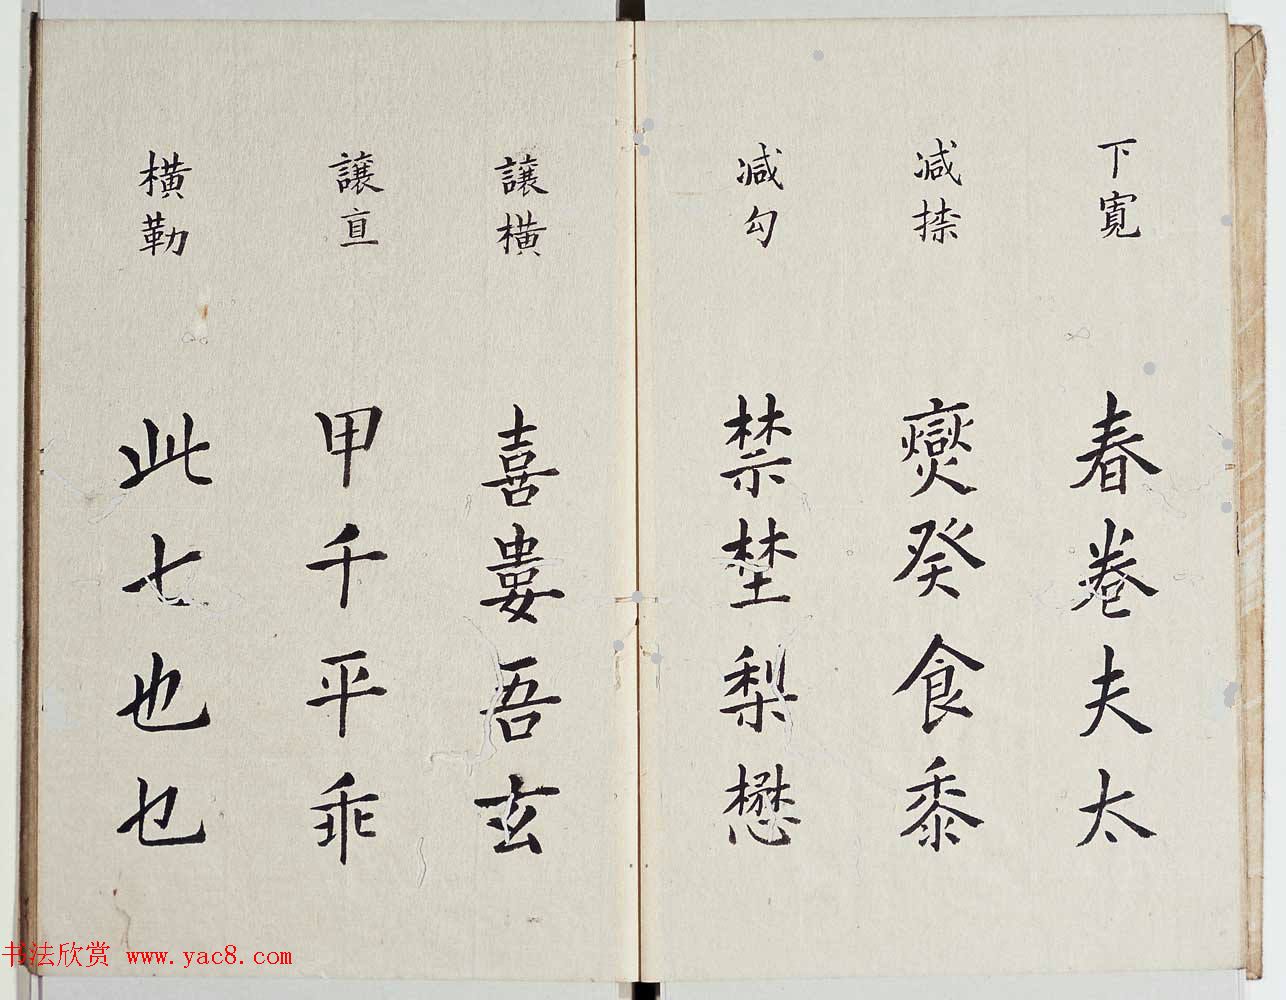 下寬 春卷夫太
减捺 燮癸食黍
减勾 禁埜梨懋
讓橫 喜婁吾玄
讓直 甲千平乖
橫勒 此七也乜
书法欣赏 www.yac8.com